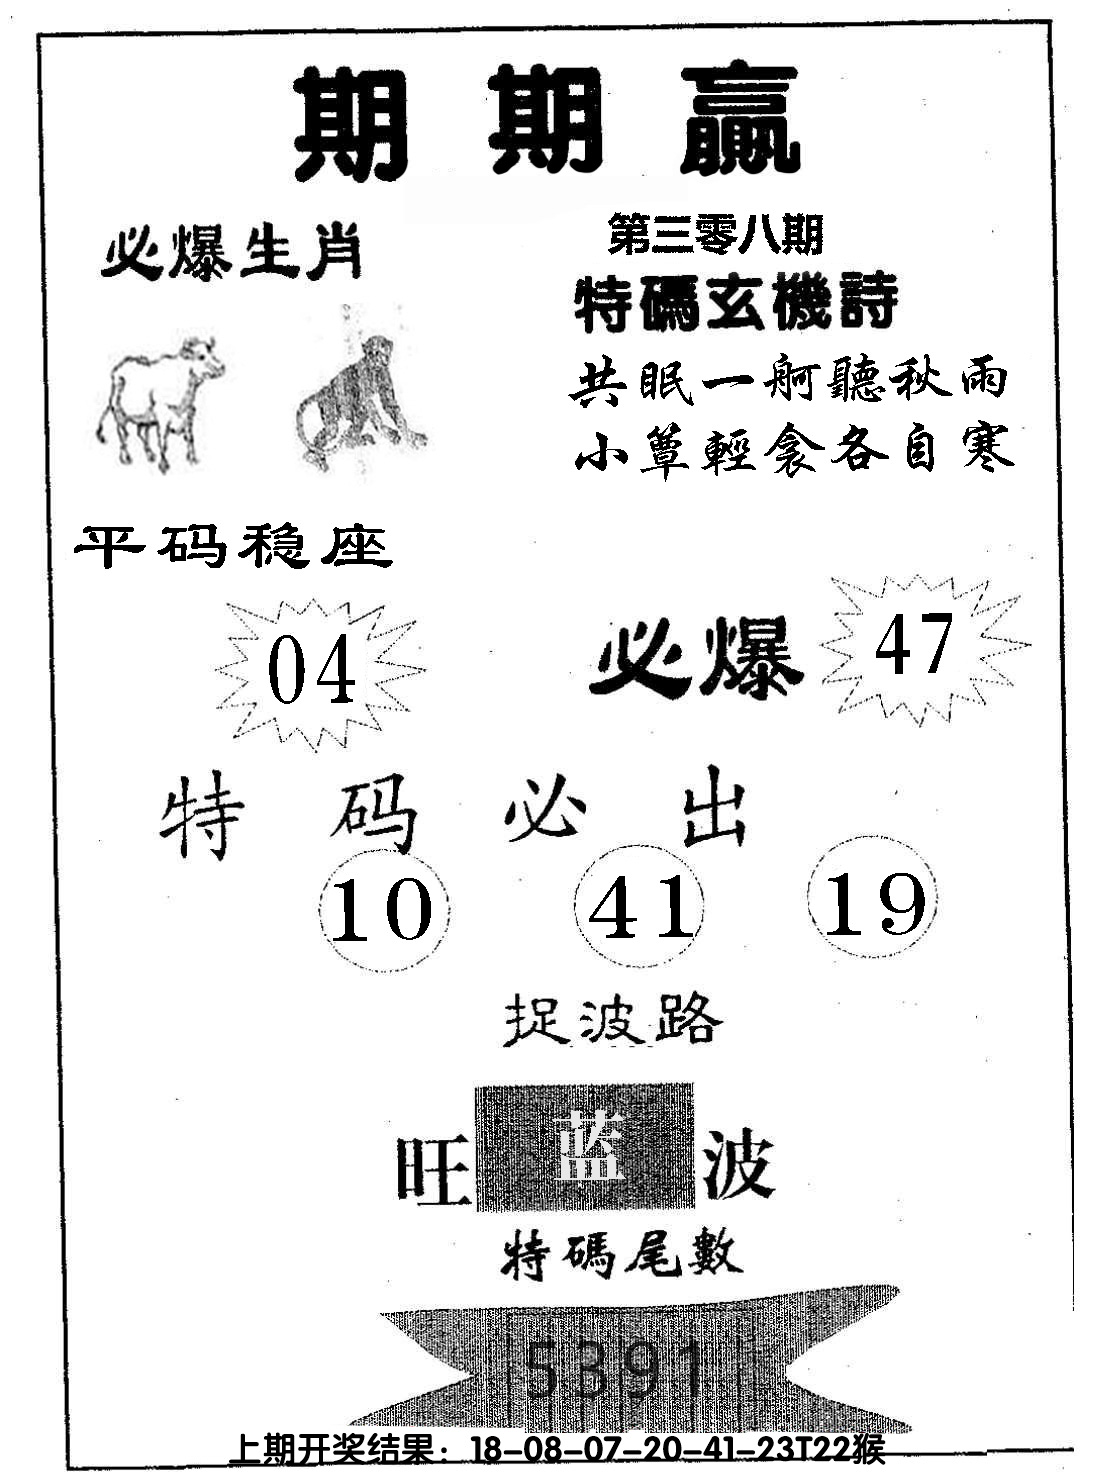 期期贏
必爆生肖
第三零八期
特碼玄機詩
共眠一舸聽秋雨
小簟輕衾各自寒
平码稳座
04
必爆
47
特码必出
10 41 19
捉波路
旺蓝波
特碼尾數
5391
上期开奖结果：18-08-07-20-41-23T22猴